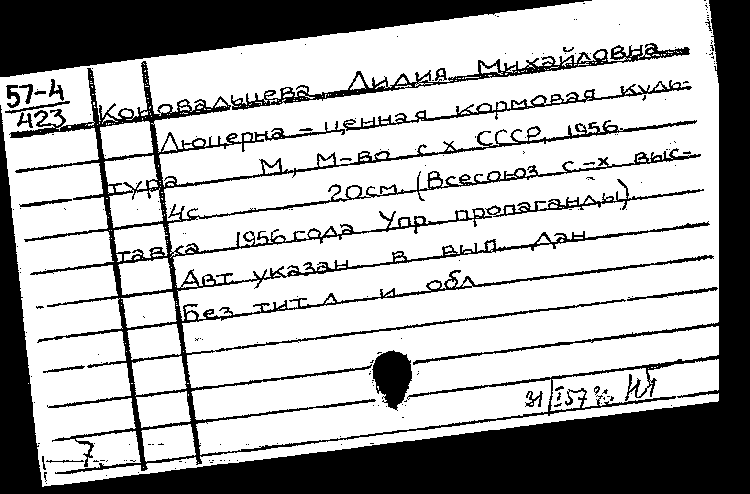 57-4
423
Коновальцева Лидия Михайловна
Люцерна - ценная кормовая куль-
тура М., М-во с х СССР, 1956
4с 20см (Всесоюз с-х выс-
тавка 1956 года Упр. пропаганды)
Авт указан в вып дан
Без тит л и обл
31/I57
7.